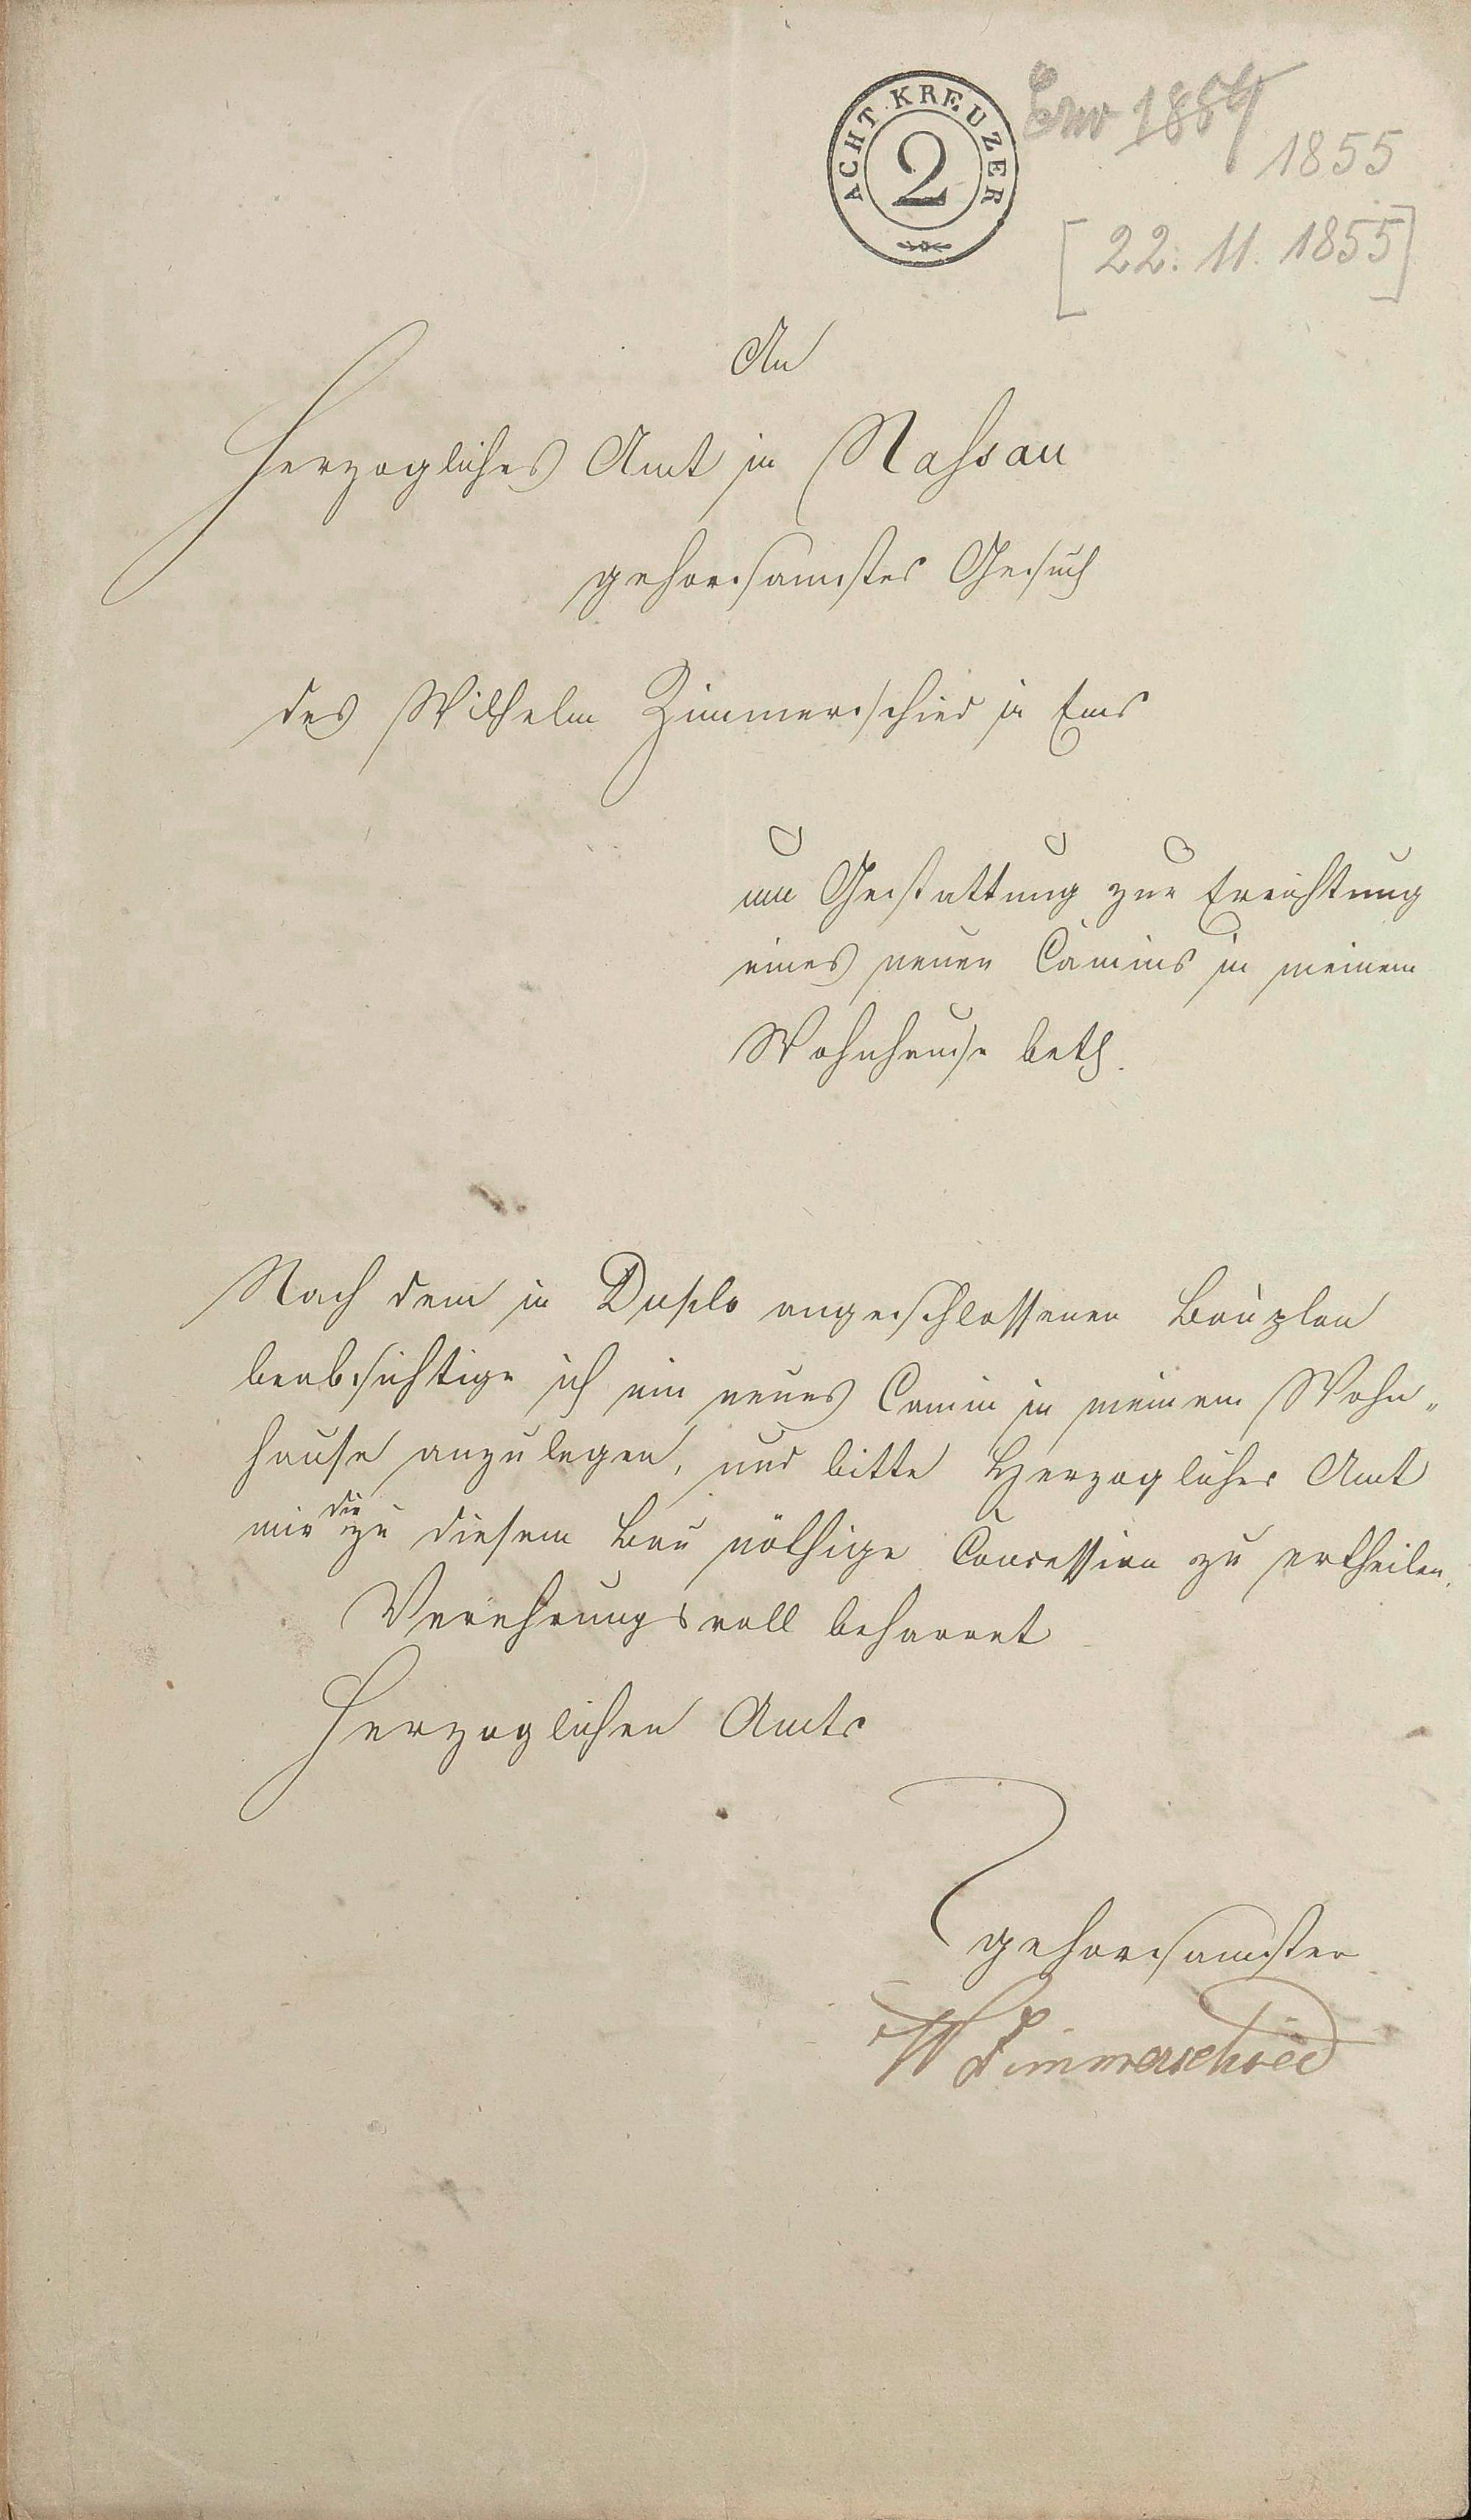 ACHT KREUZER
2
1854
1855
[22. 11. 1855]
An
Herzogliches Amt in Nassau
gehorsamstes Gesuch
des Wilhelm Zimmerschied in Ems
um Gestattung zur Errichtung
eines neuen Camins in meinem
Wohnhause betf.
Nach dem in Duplo angeschlossenen Bauplan
beabsichtige ich ein neues Camin in meinem Wohn„
hause anzulegen, und bitte Herzogliches Amt
mir die zu diesem Bau nöthige Concession zu ertheilen.
Verehrungsvoll beharret
Herzoglichen Amts
gehorsamster
W Zimmerschied